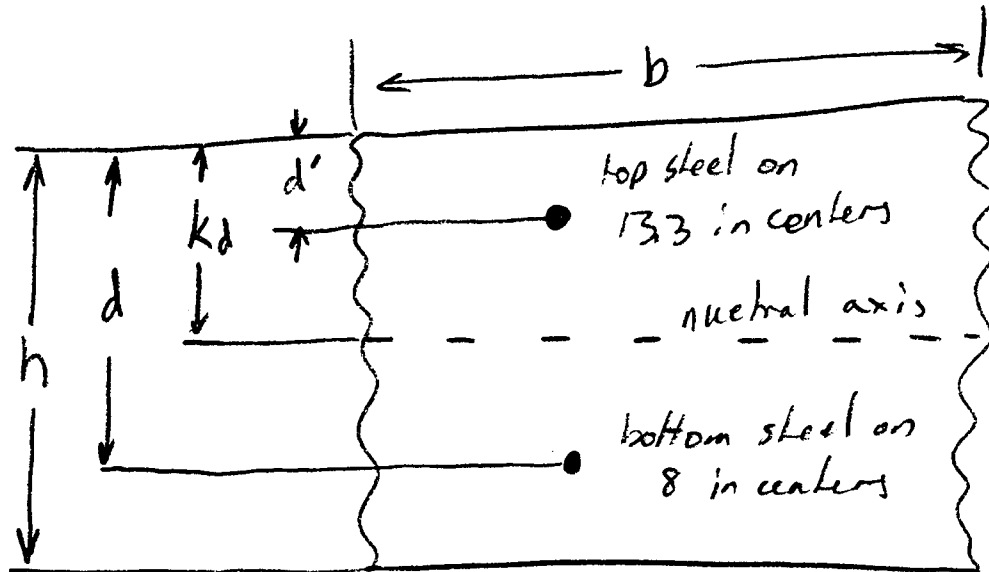 b
d'
top steel on
13.3 in centers
kd
d
nuetral axis
h
bottom steel on
8 in centers